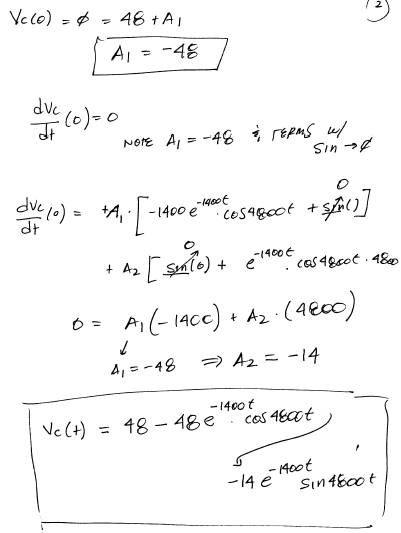 2
Vc(0) = ∅ = 48 + A1
A1 = -48
dVc/dt (0) = 0
NOTE A1 = -48 & TERMS w/
sin → ∅
0
dVc/dt (0) = +A1 · [-1400 e^-1400t · cos4800t + sin( )]
0
+ A2 [sin(0) + e^-1400t · cos4800t · 4800]
0 = A1(-1400) + A2 · (4800)
↓
A1 = -48 ⇒ A2 = -14
Vc(t) = 48 - 48 e^-1400t · cos4800t
-14 e^-1400t sin4800t